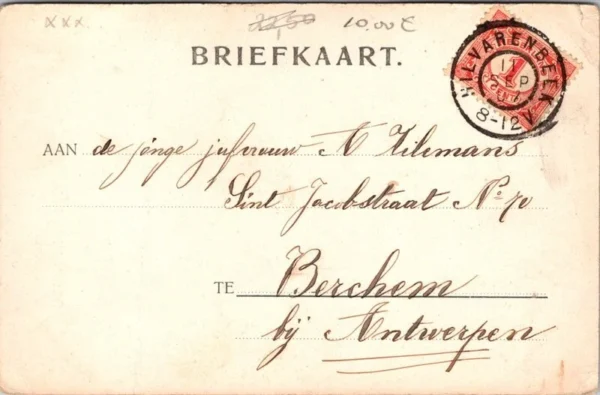 xxx 22,50 10,00€
BRIEFKAART.
HILVARENBEEK
17
SEP
8-12V
1
AAN de jonge jufvrouw A Tilemans
Sint Jacobstraat No 70
TE Berchem
bij Antwerpen